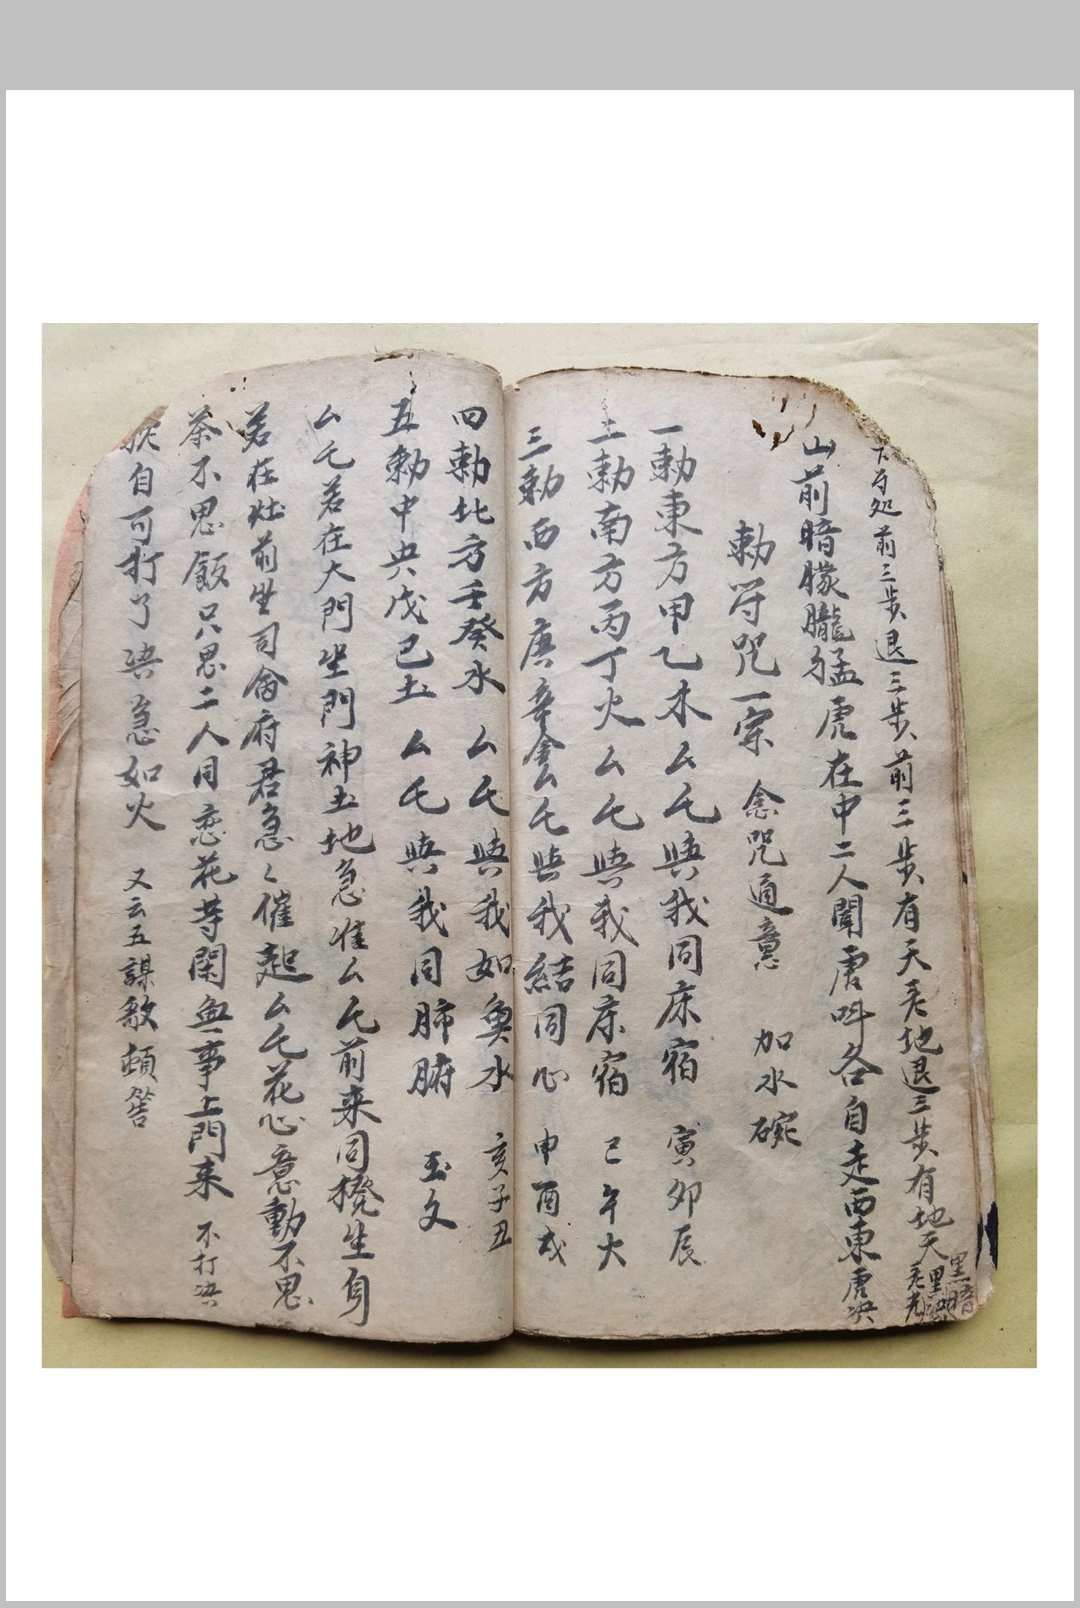 前三步退三步前三步有天是地退三步有地天
黑暗
山前暗朦朧猛虎在中二人聞唐叫各自走西東唐决
勅符咒一宗 念咒通意 加水碗
一勅東方甲乙木厶乇與我同床宿 寅卯辰
二勅南方丙丁火厶乇與我同床宿 巳午大
三勅西方庚辛金厶乇與我結同心 申酉戌
四勅北方壬癸水厶乇與我如魚水 亥子丑
五勅中央戊己土厶乇與我同肺腑 玉文
厶乇若在大門坐門神土地急准厶乇前来同撹生身
若在灶前坐司命府君急々催起厶乇花心意動不思
茶不思飯只思二人同恋花等閑無事上門来 不打决
自可打了决急如火 又云五謀敬頓筶